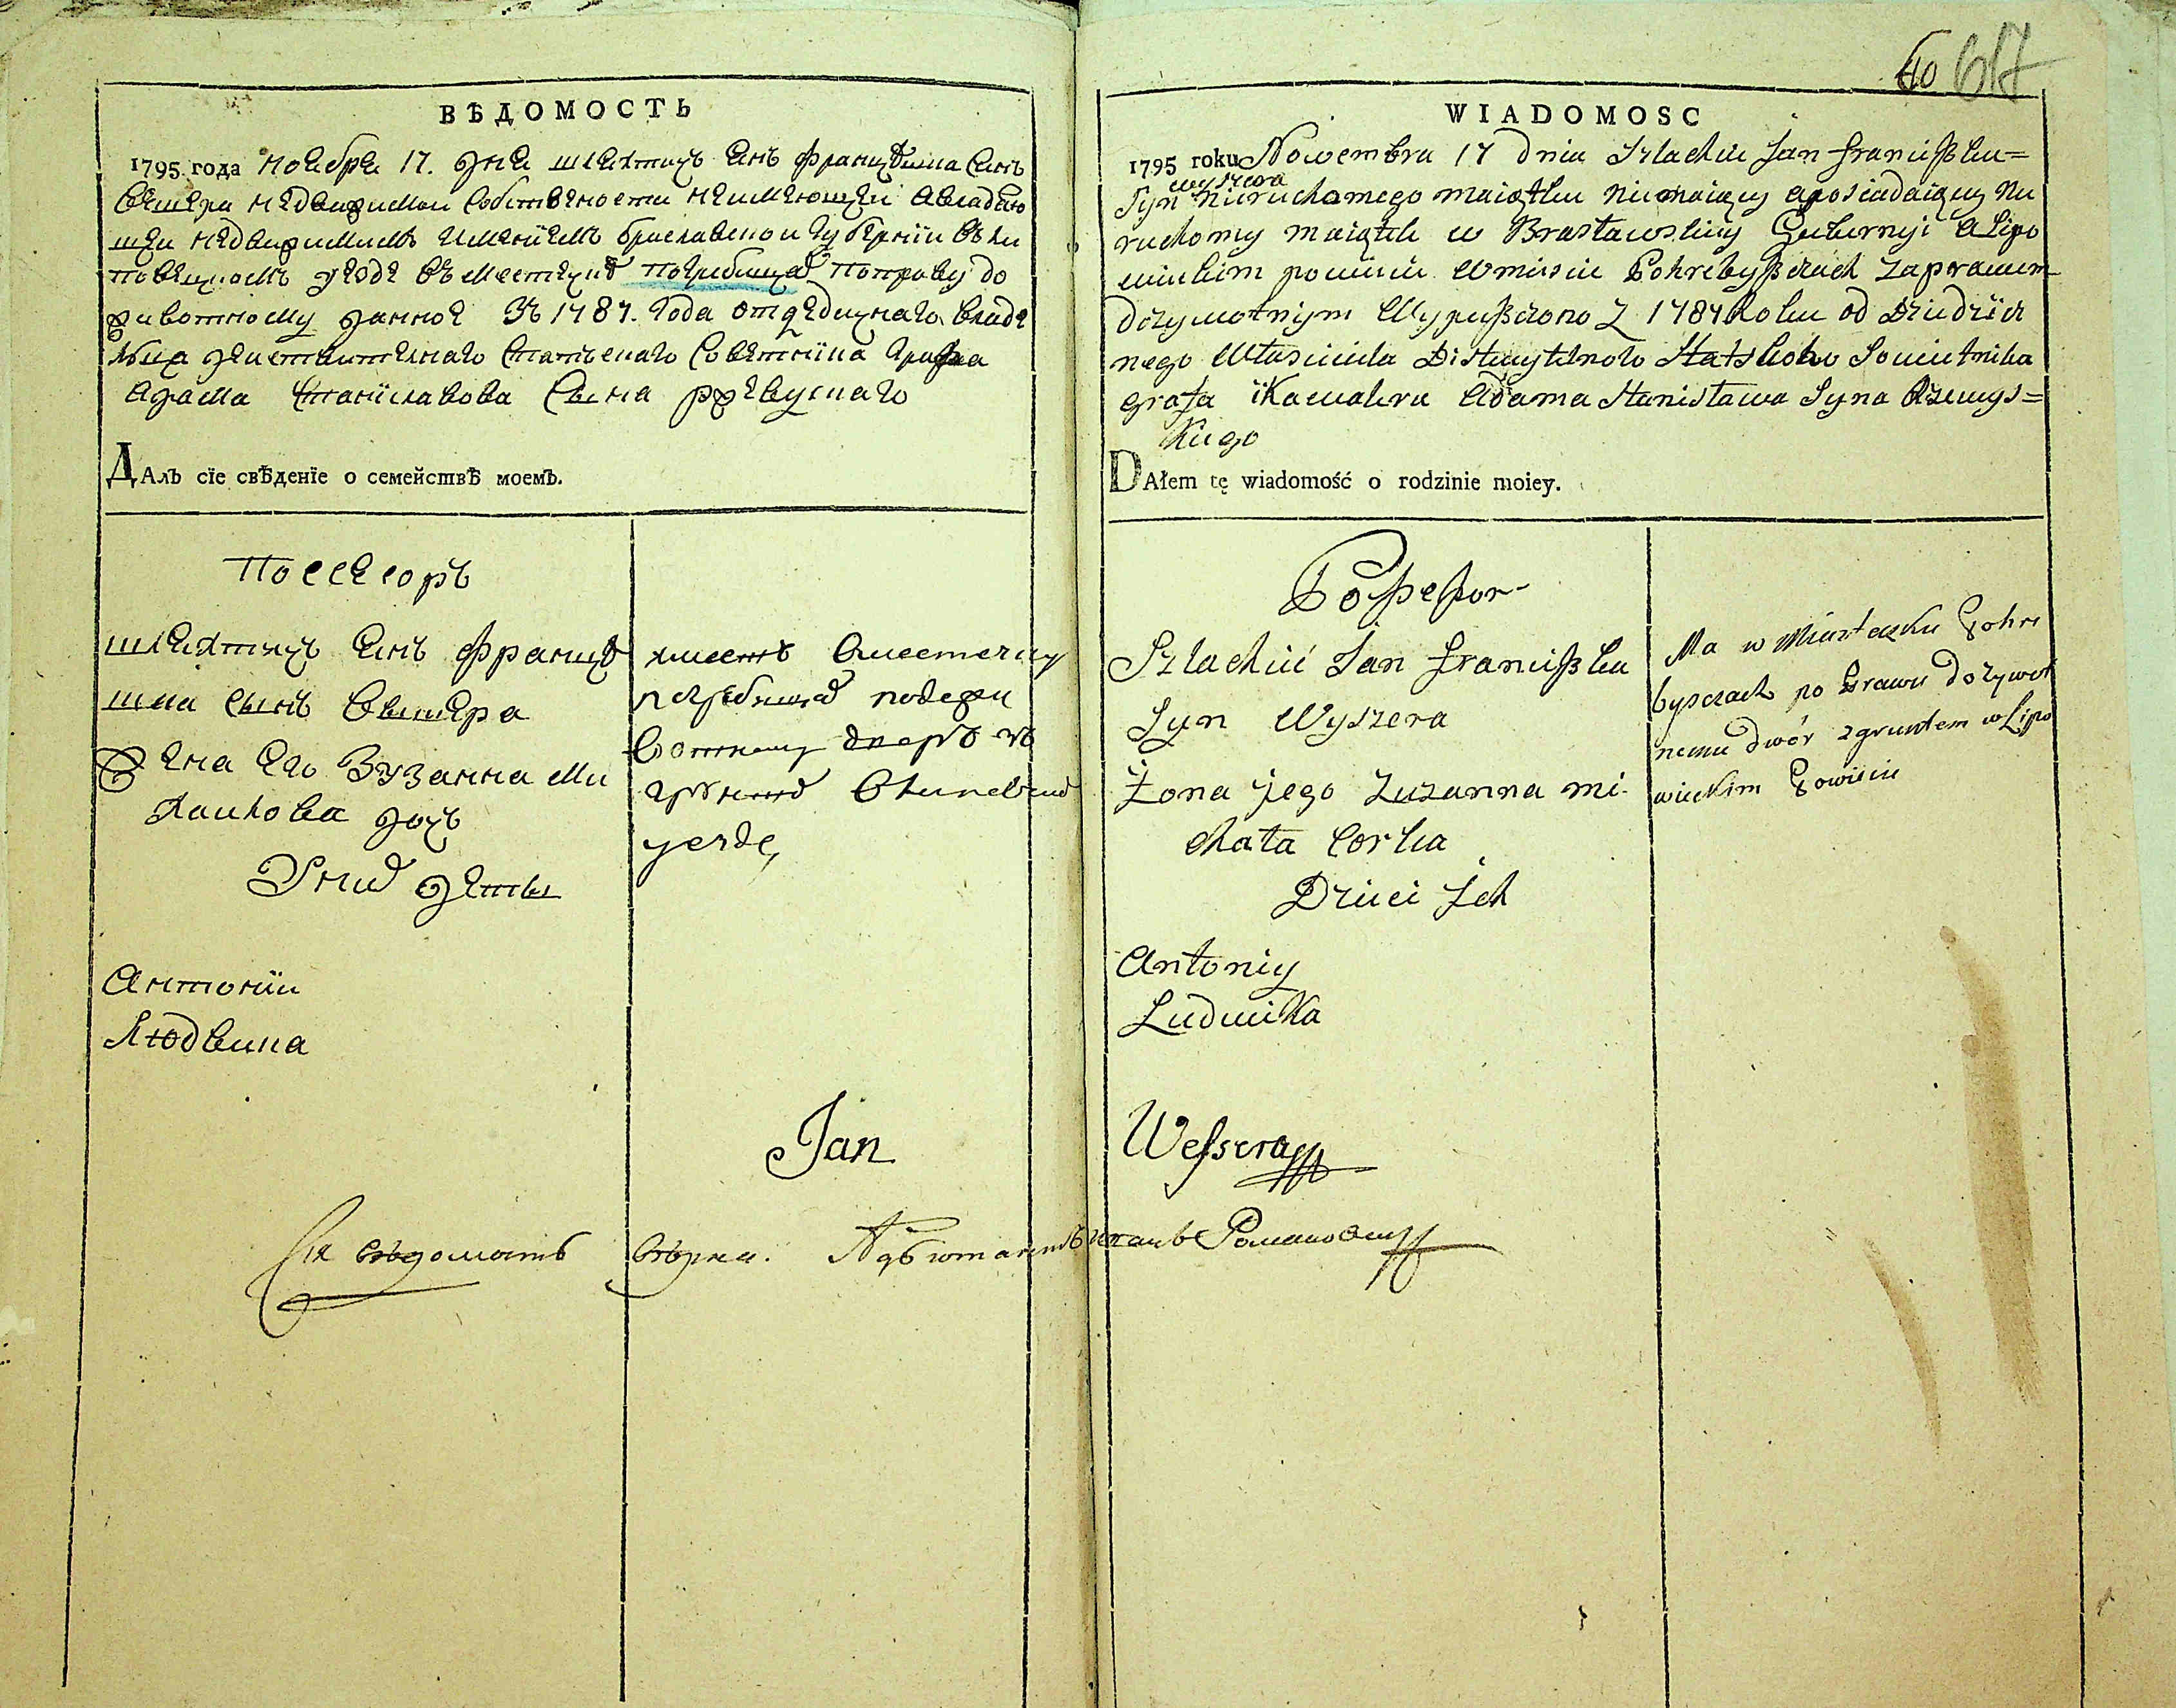 ВѢДОМОСТЬ
1795 года ноября 17. дня шляхтичъ Янъ Францѣшка Синъ
Вѣшера недвижимои собствености неимеющеи авладею
щеи недвижимимъ имениемъ браславскои губернии вѣли
повецкомъ уезде въ местечке погребищах поправу до
животному данное Зъ 1787. года отдедичнаго владе
льца действителнаго статскаго Советника графа
Адама Станиславова Сына ржевускаго
ДАлъ сїе свѣденїе о семействѣ моемъ.
Поссесоръ
шляхтичъ Янъ Францѣ
шка сынъ Вышера
Жена Его Зузанна Ми
хаилова дочъ
Уних дети
Антонии
Людвика
имеетъ вместечку
погребищах подожи
вотному дворъ зъ
уезде,
Jan
Сія вѣдомость вѣрна. Адъютантъ Романов
40 617
WIADOMOSC
1795 roku Nowembra 17 dnia Szlachcic Jan Franciszku=
wyszera
Syn nieruchomego maiątku niemaiący aposiadaiący nie
ruchomy maiątek w Brasławskiey Gubernyi a Lipo
wieckim powiecie w miescie Pohrebyszczach za prawem
dożywotnym Wypuszczono z 1787 Roku od Dziedzicz
nego Własciciela Distwytelnoho Statskoho Sowietnika
Grafa i Kawalera Adama Stanisława Syna Rzewus=
kiego
DAłem tę wiadomość o rodzinie moiey.
Possessor
Szlachcić Jan Franciszku
Syn Wyszera
Żona jego Zuzanna mi-
chała Corka
Dzieci Jch
Antoniy
Ludwika
Ma w Miasteczku Pohre
byszczach po Prawu dożywot
nemu dwór z gruntem w Lipo
wieckim Powiecie
Wesscra